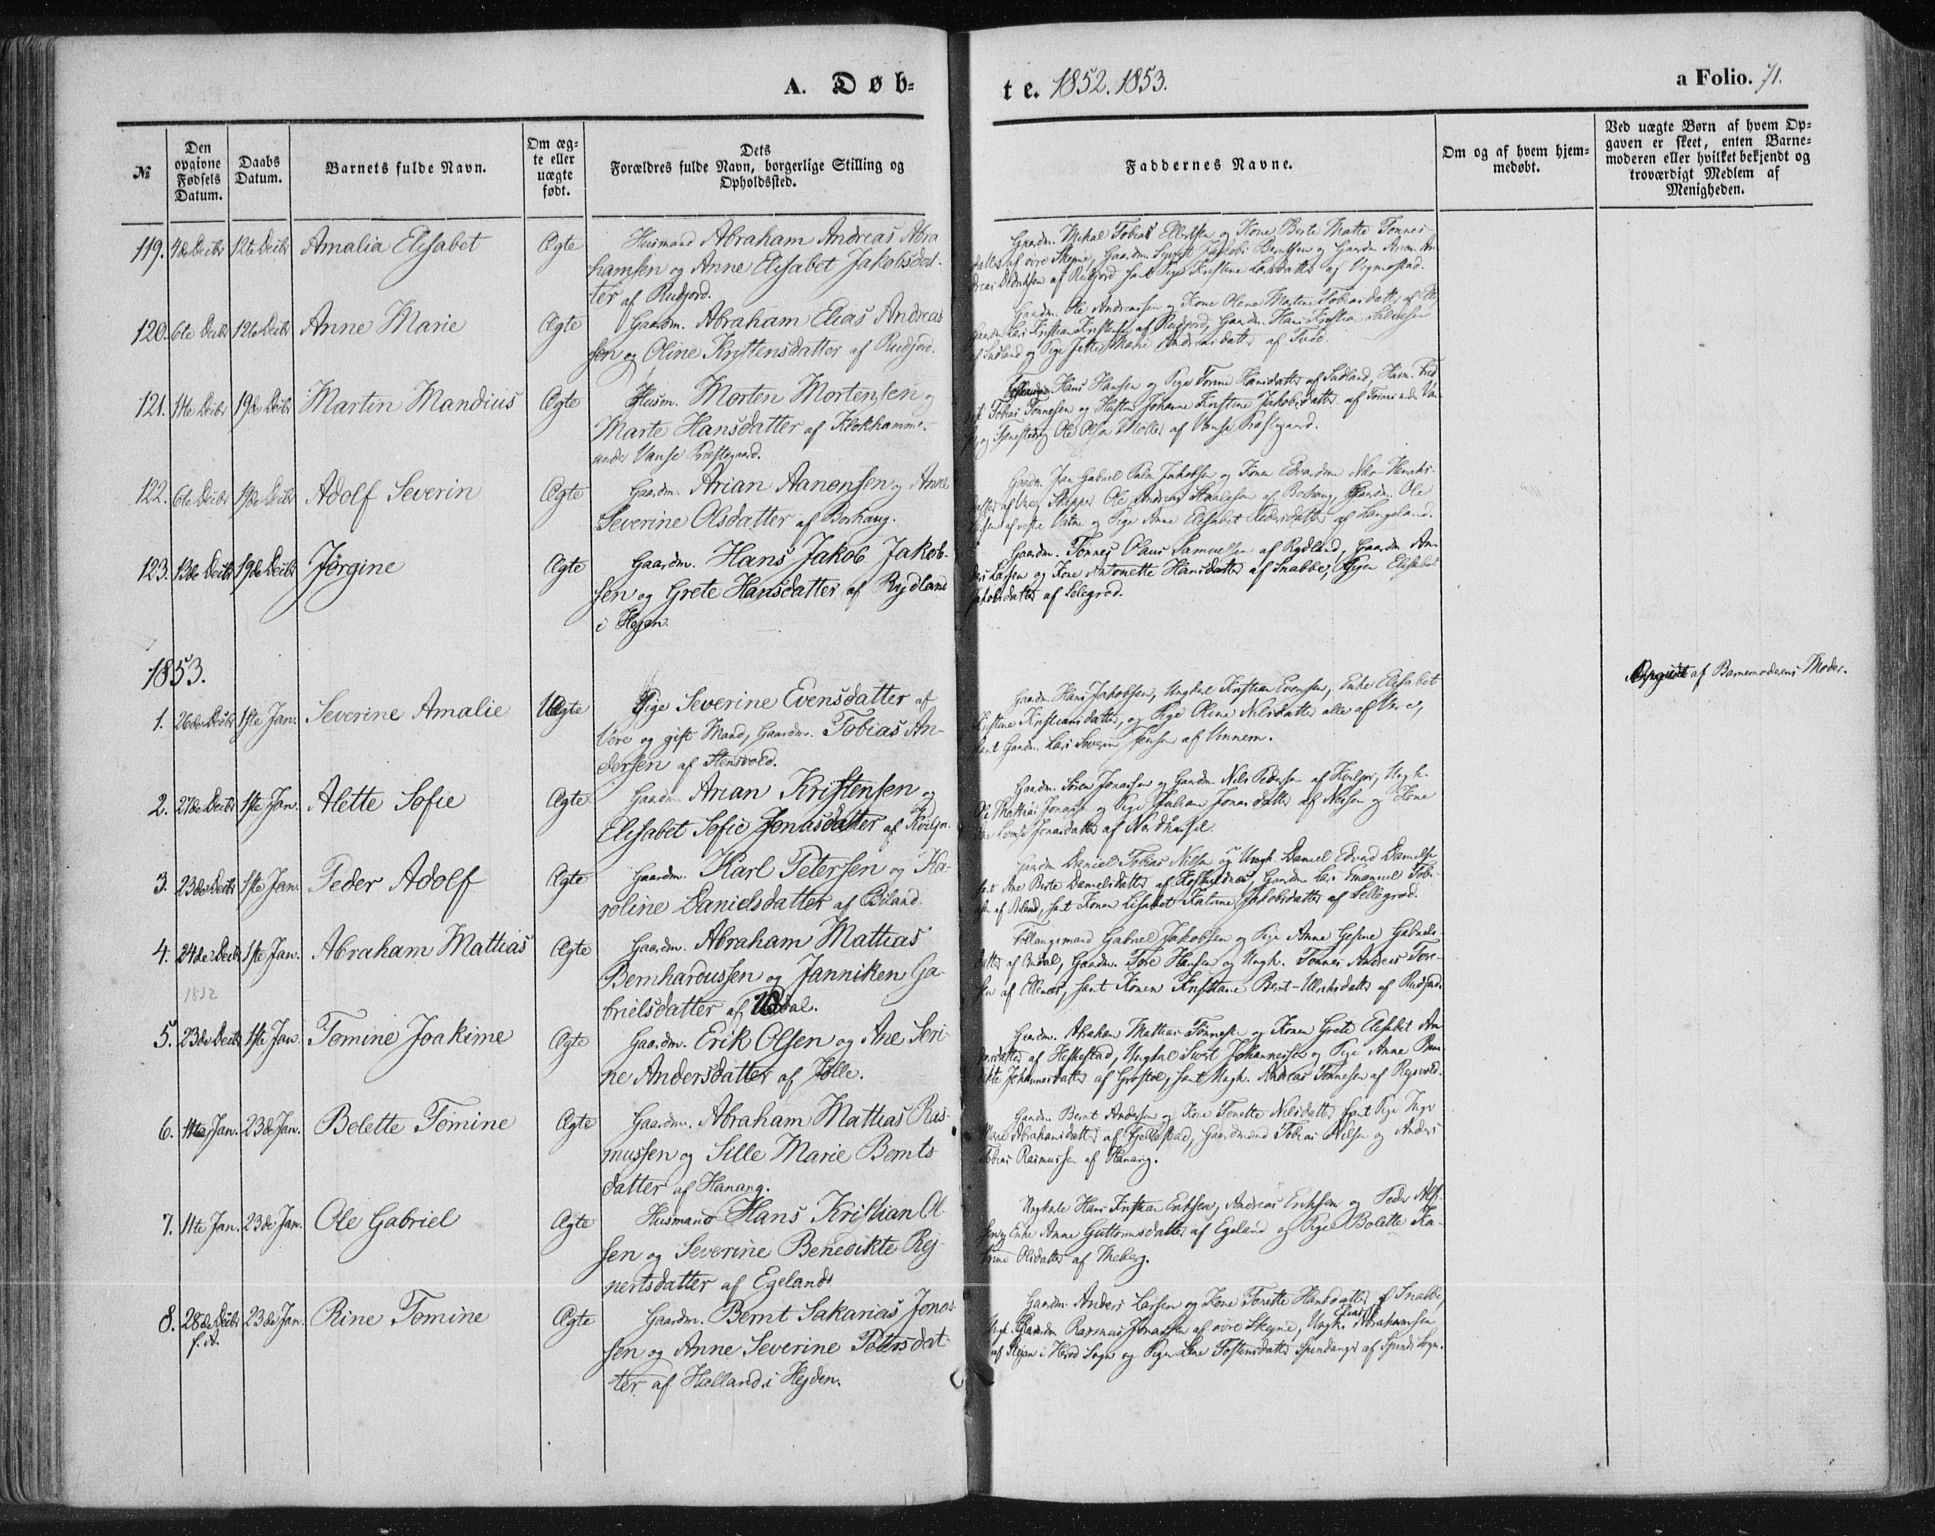 A. Døb=
te. 1852. 1853.
a Folio. 71.
№
Den opgivne Fødsels Datum.
Daabs Datum.
Barnets fulde Navn.
Om æg-te eller uægte født.
Dets Forældres fulde Navn, borgerlige Stilling og Opholdssted.
Faddernes Navne.
Om og af hvem hjem-medøbt.
Ved uægte Børn af hvem Op-gaven er skeet, enten Barne-moderen eller hvilket bekjendt og troværdigt Medlem af Menigheden.
119. 4de Decbr 12te Decbr Amalia Elisabet Ægte Husmand Abraham Andreas Abra
hamsen og Anne Elisabet Jakobsdat-
ter af Rudjord.
Gaardm. Mikal Tobias Ellertsen og Kone Berte Matte Tønnes
datter af øvre Skeyne, Gaardm.
af Rudjord samt Pige Kristine Larsdatter af Vigmostad.
120. 6te Decbr 12te Decbr Anne Marie Ægte Gaardm. Abraham Elias Andreas
sen og Oline Kristensdatter af Rudjord.
Gaardm. Ole Andreassen og Kone Olene Martine Tobiasdatter af
af Rudjord, Gaardm. Hans Kristian
af Sudland og Pige Jette Marie Andreasdatter af
121. 11te Decbr 19de Decbr Martin Mandius Ægte Husm. Morten Mortensen og
Marte Hansdatter af Klokhammer
under Vanse Præstegaard.
Hans Hansen og Pige Tomine Hansdatter af Sudland, Husm.
Tobias Tønnesen og Hustru Johanne Kristine Jakobsdatter af
Ole Olsen Møller af Vanse Præstegaard.
122. 6te Decbr 19de Decbr Adolf Severin Ægte Gaardm. Arian Aanonsen og Anne
Severine Olsdatter af Borhaug.
Gaardm. Jan Gabriel Jakobsen og Konen
datter af Ore, Skipper Ole Andreas Staalesen af Borhaug, Gaardm. Ole
af vestre Vatne og Pige Anne Elisabet Pedersdatter af Langeland.
123. 13de Decbr 19de Decbr Jørgine Ægte Gaardm. Hans Jakob Jakob-
sen og Grete Hansdatter af Rydland
i Hejen.
Gaardm. Tønnes Olaus Samuelsen af Rydland, Gaardm. An-
ders Larsen og Kone Antonette Hansdatter af Snabbe, Pigen Elisabet
Jakobsdatter af Lelegrød.
1853.
1. 26de Decbr 1ste Jan. Severine Amalie Uægte Pige Severine Evensdatter af
Vere og gift Mand, Gaardm. Tobias An-
dersen af Stensvold.
Gaardm. Hans Jakobsen, Ungkarl Kristian Evensen, Enke Elisabet
Kristine Kristiansdatter, og Pige Oline Nilsdatter alle af Vere,
samt Gaardm. Lars Severin Jensen af Vinnem.
Opgivet af Barnemoderens Moder.
2. 27de Decbr 1ste Jan. Alette Sofie Ægte Gaardm. Arian Kristensen og
Elisabet Sofie Jonasdatter af Kviljo.
Gaardm. Søren Jonassen og Gaardm. Nils Pedersen af Kviljo, Ungk.
Ole Mattias Jonassen og Pige Juliane Jonasdatter af og Kone
Jonasdatter af Nordhasel.
3. 23de Decbr 1ste Jan. Peder Adolf Ægte Gaardm. Karl Petersen og Ka-
roline Danielsdatter af Biland.
Gaardm. Daniel Tobias Nilsen og Ungk. Daniel Edvard Danielsen
samt Ane Berte Danielsdatter af Gaardm. Lars Emanuel Tobi-
asen af samt Konen Lisabet Katrine Jakobsdatter af Lellegrød.
4. 24de Decbr 1852 1ste Jan. Abraham Mattias Ægte Gaardm. Abraham Mattias
Bernhardussen og Janniken Ga-
brielsdatter af Urdal.
Gabriel Jakobsen og Pige Anne Gesine Gabriels-
datter af Gaardm. Tore Hansen og Ungk. Tønnes Andreas Tore-
sen af Ellenes, samt Konen Kristiane Bernt-Ulriksdatter af Rudjord.
5. 23de Decbr 1ste Jan. Tomine Joakime Ægte Gaardm. Erik Olsen og Ane Seri-
ne Andersdatter af Jølle.
Gaardm. Abraham Mattias Tønnessen og Konen Grete Elisabet An-
dersdatter af Heskestad, Ungkarl Sivert Johannessen og Pige Anne
Johannesdatter af samt Ungk. Andreas Tønnesen af
6. 11te Jan. 23de Jan. Bolette Tomine Ægte Gaardm. Abraham Mattias Ras-
mussen og Sille Marie Bernts
datter af Hanang.
Gaardm. Bernt Andersen og Kone Tonette Nilsdatter samt Pige Inger
Marie Abrahamsdatter af Fjellestad, Gaardmænd Tobias Nilsen og Anders
Tobias Rasmussen af Hanang.
7. 11te Jan. 23de Jan. Ole Gabriel Ægte Husmand Hans Kristian Ol-
sen og Severine Benedikte Rej-
nertsdatter af Egeland.
Ungkarle Hans Kristian Eriksen, Andreas Eriksen og Peder Alf-
sen og Enke Anne Guttormsdatter af Egeland og Pige Bolette Ka-
trine Olsdatter af
8. 28de Decbr f.A. 23de Jan. Rine Tomine Ægte Gaardm. Bernt Sakarias Jonas-
sen og Anne Severine Petersdat-
ter af Halland i Hejden.
Gaardm. Anders Larsen og Kone Tonette Hansdatter af Snabbe,
Rasmus Jonassen af øvre Skeyne, Ungk. Elias Abrahamsen
i Herod Sogn og Pige Tostensdatter Spindanger af Spinds Sogn.